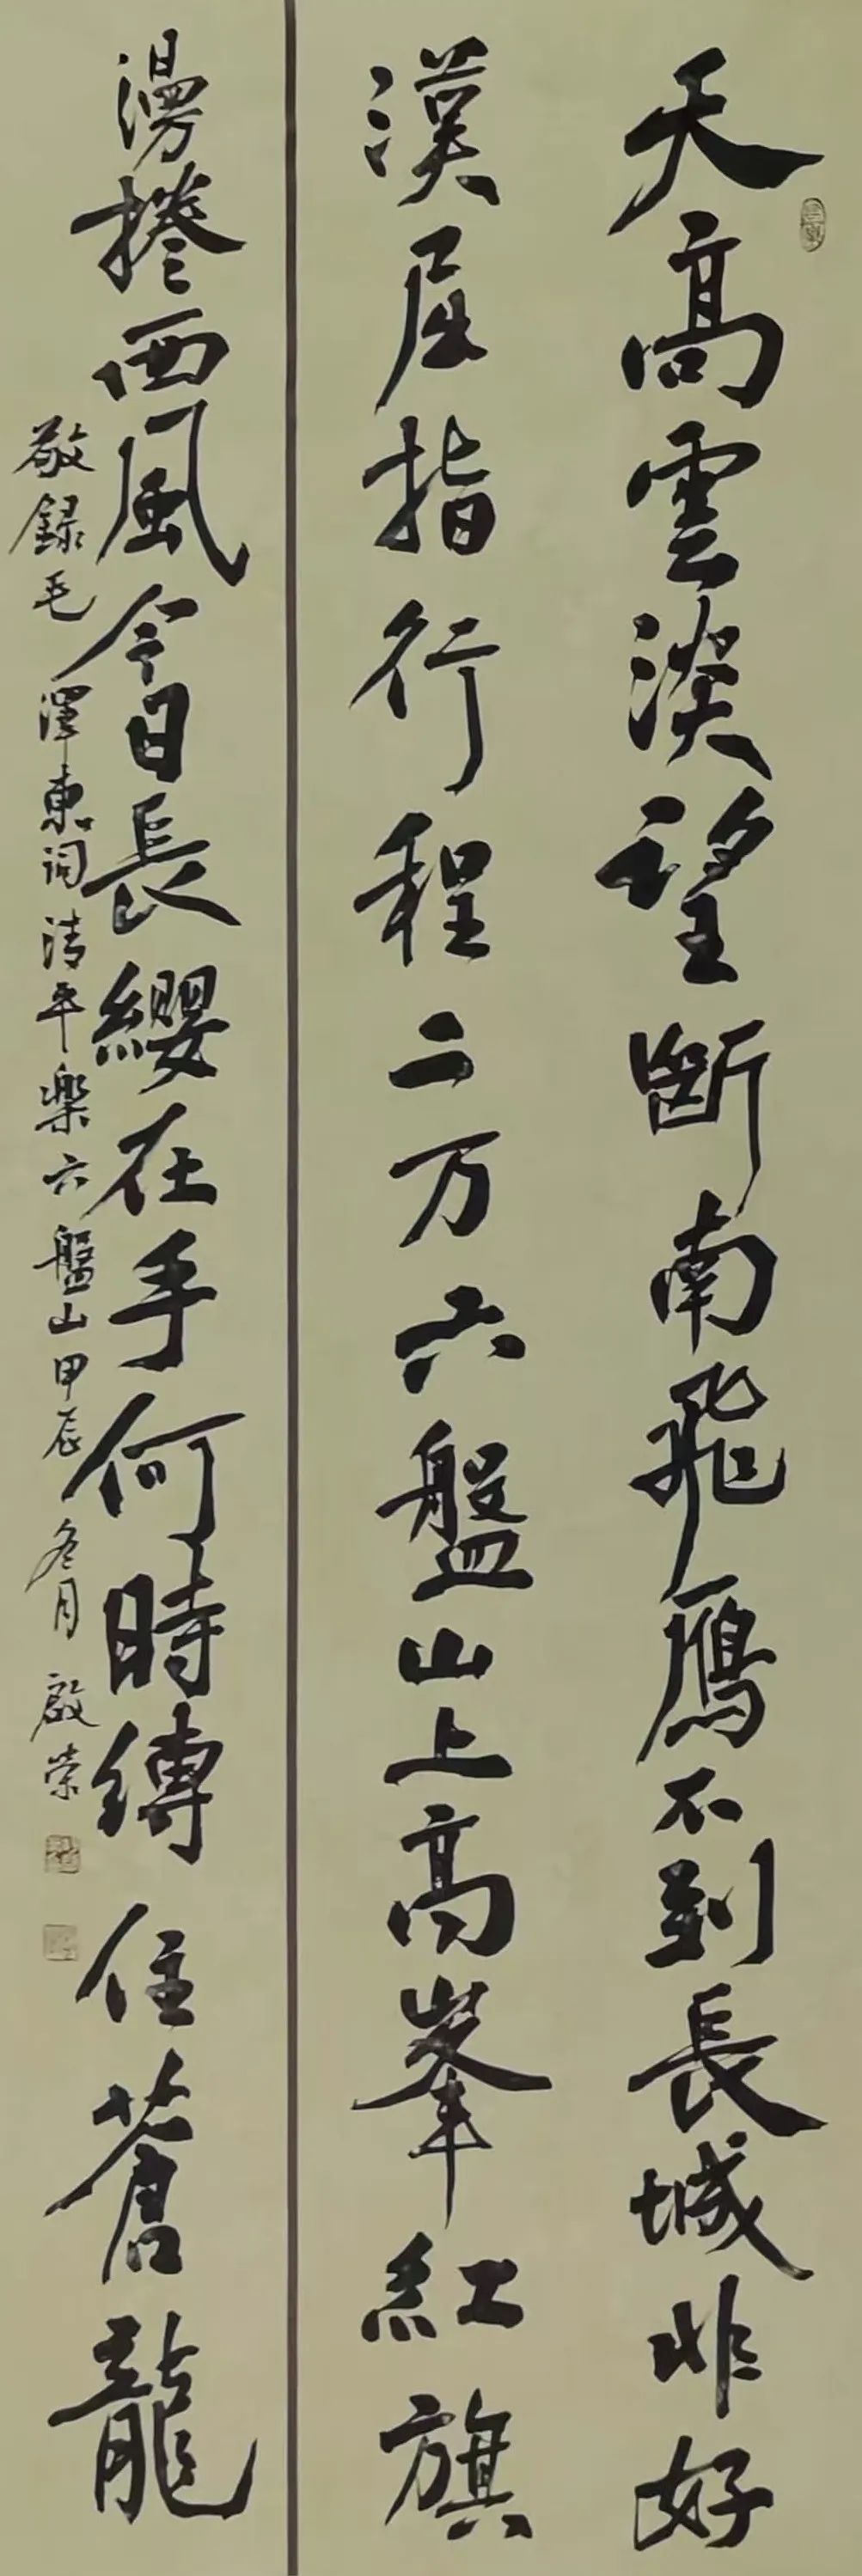 天高雲淡望斷南飛鴈不到長城非好
漢屈指行程二万六盤山上高峯紅旗
漫捲西風今日長纓在手何時縛住蒼龍
敬録毛澤東詞清平樂六盤山甲辰冬月啟荣